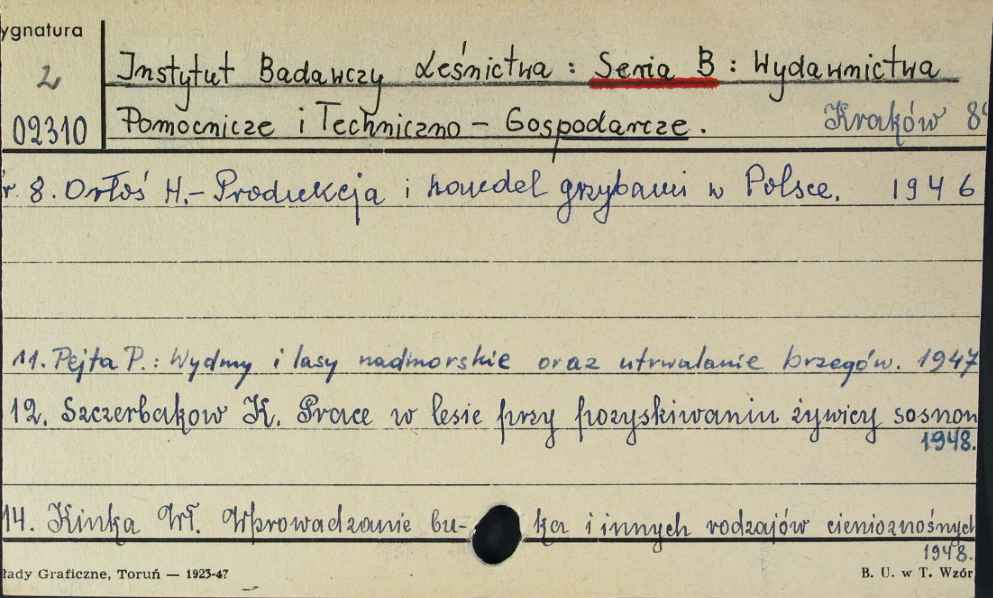 ygnatura
2
Instytut Badawczy Leśnictwa : Seria B : Wydawnictwa
02310 Pomocnicze i Techniczno – Gospodarcze. Kraków
r. 8. Orłoś H. – Produkcja i handel grzybami w Polsce. 1946
11. Pejta P. : Wydmy i lasy nadmorskie oraz utrwalanie brzegów. 1947
12. Szczerbakow K. Prace w lesie przy pozyskiwaniu żywicy sosnow
1948.
14. Kinka Wł. Wprowadzanie bu- ka i innych rodzajów cienioznośnych
1948.
łady Graficzne, Toruń — 1923-47 B. U. w T. Wzór